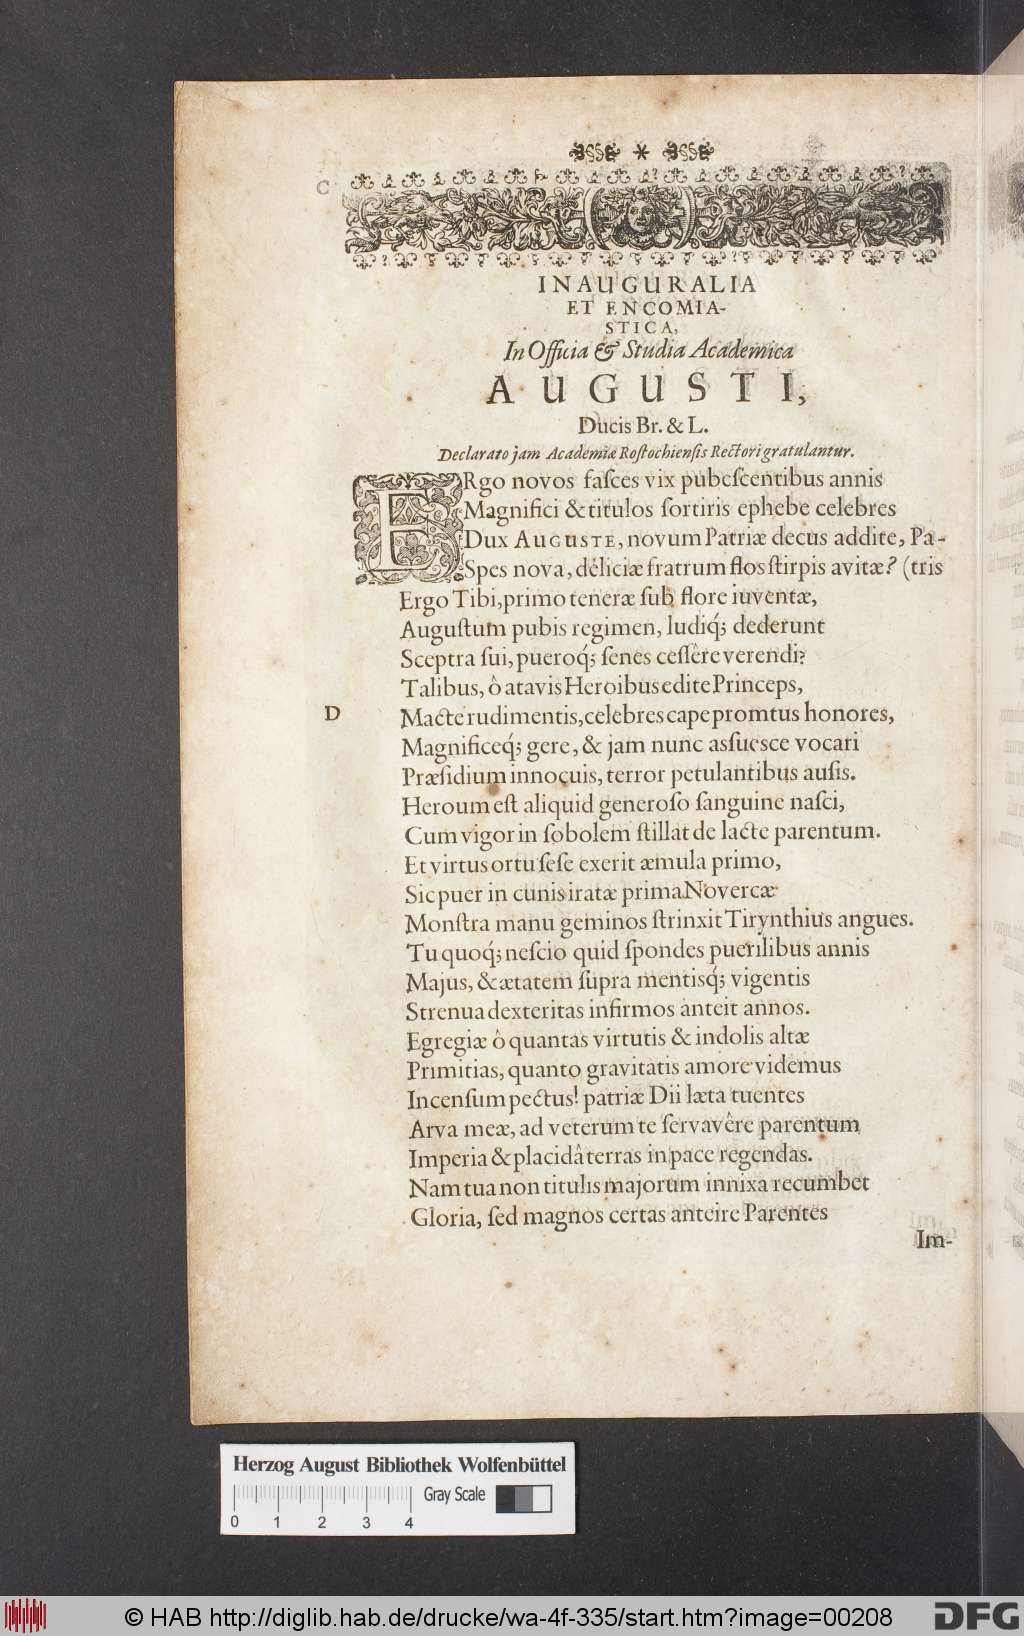 C
INAUGURALIA
ET ENCOMIA-
STICA,
In Officia & Studia Academica
AUGUSTI,
Ducis Br. & L.
Declarato jam Academiæ Roſtochienſis Rectori gratulantur.
ERgo novos faſces vix pubeſcentibus annis
Magnifici & titulos ſortiris ephebe celebres
Dux AUGUSTE, novum Patriæ decus addite, Pa-
Spes nova, déliciæ fratrum flos ſtirpis avitæ? (tris
Ergo Tibi, primo teneræ ſub flore iuventæ,
Auguſtum pubis regimen, ludiq́; dederunt
Sceptra ſui, pueroq́; ſenes ceſſêre verendi?
Talibus, ô atavis Heroibus edite Princeps,
D
Macte rudimentis, celebres cape promtus honores,
Magnificeq́; gere, & jam nunc asſuesce vocari
Præſidium innocuis, terror petulantibus auſis.
Heroum eſt aliquid generoſo ſanguine naſci,
Cum vigor in ſobolem ſtillat de lacte parentum.
Et virtus ortu ſeſe exerit æmula primo,
Sic puer in cunis iratæ prima Novercæ
Monſtra manu geminos ſtrinxit Tirynthius angues.
Tu quoq́; neſcio quid ſpondes puerilibus annis
Majus, & ætatem ſupra mentisq́; vigentis
Strenua dexteritas infirmos anteit annos.
Egregiæ ô quantas virtutis & indolis altæ
Primitias, quanto gravitatis amore videmus
Incenſum pectus! patriæ Dii læta tuentes
Arva meæ, ad veterum te ſervavêre parentum
Imperia & placidâ terras in pace regendas.
Nam tua non titulis majorum innixa recumbet
Gloria, ſed magnos certas anteire Parentes
Im-
Herzog August Bibliothek Wolfenbüttel
Gray Scale
0 1 2 3 4
© HAB http://diglib.hab.de/drucke/wa-4f-335/start.htm?image=00208
DFG